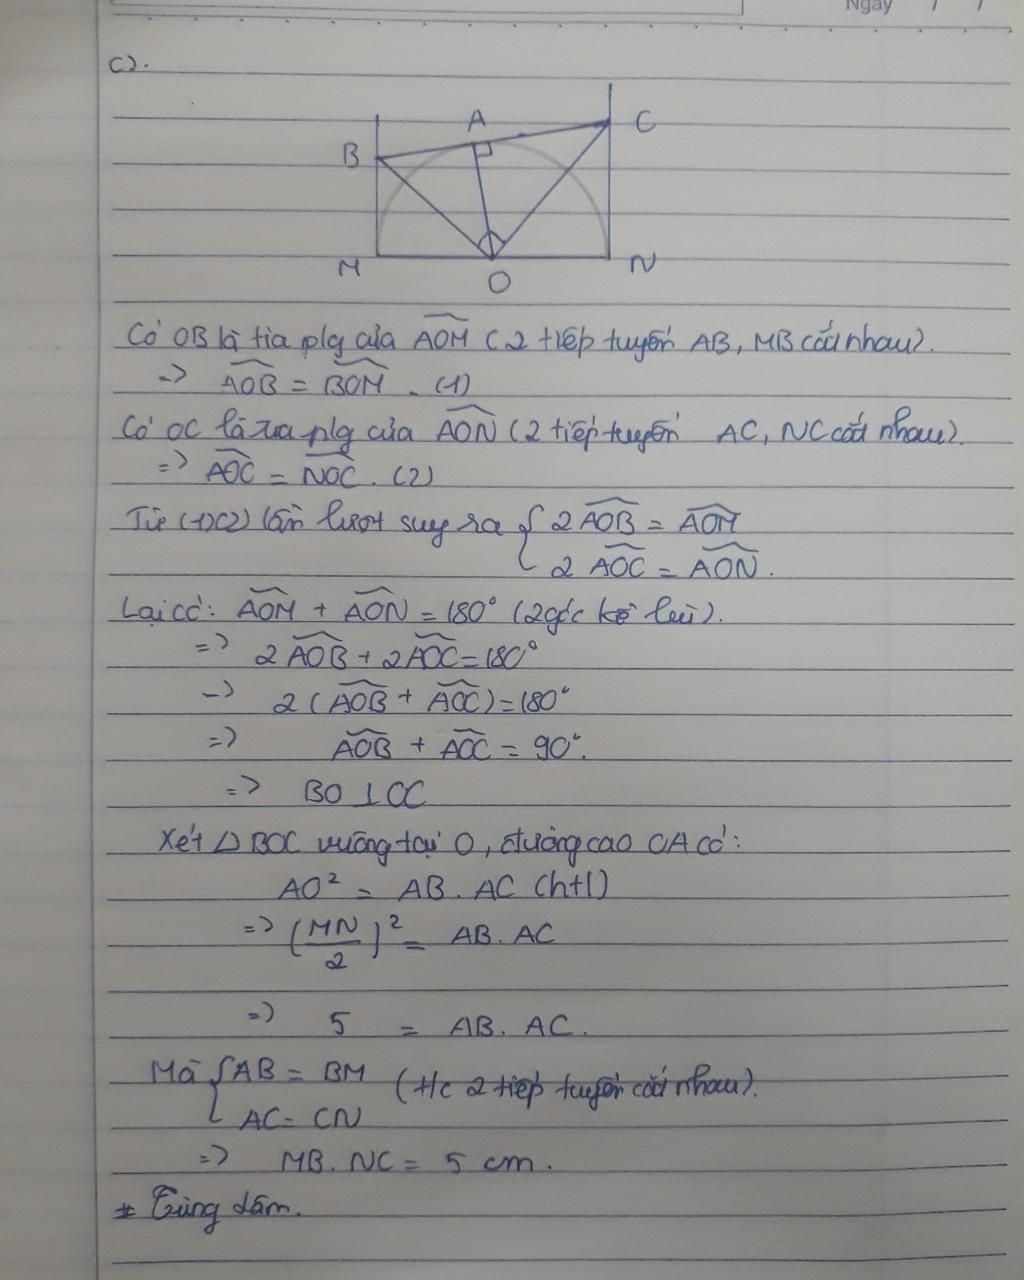 Ngày / /
c).
A
C
B
M
O
N
Có OB là tia plg của AOM (2 tiếp tuyến AB, MB cắt nhau).
=> AOB = BOM. (1)
Có OC là tia plg của AON (2 tiếp tuyến AC, NC cắt nhau).
=> AOC = NOC. (2)
Từ (1)(2) lần lượt suy ra { 2AOB = AOM
2 AOC = AON.
Lại có: AOM + AON = 180° (2 góc kề bù).
=> 2AOB + 2AOC = 180°
=> 2(AOB + AOC) = 180°
=> AOB + AOC = 90°.
=> BO ⊥ OC
Xét △BOC vuông tại O, đường cao OA có:
AO² = AB. AC (htl)
=> (MN/2)² = AB. AC
=> 5 = AB. AC.
Mà { AB = BM (t/c 2 tiếp tuyến cắt nhau).
AC = CN
=> MB. NC = 5 cm.
# Tùng dâm.